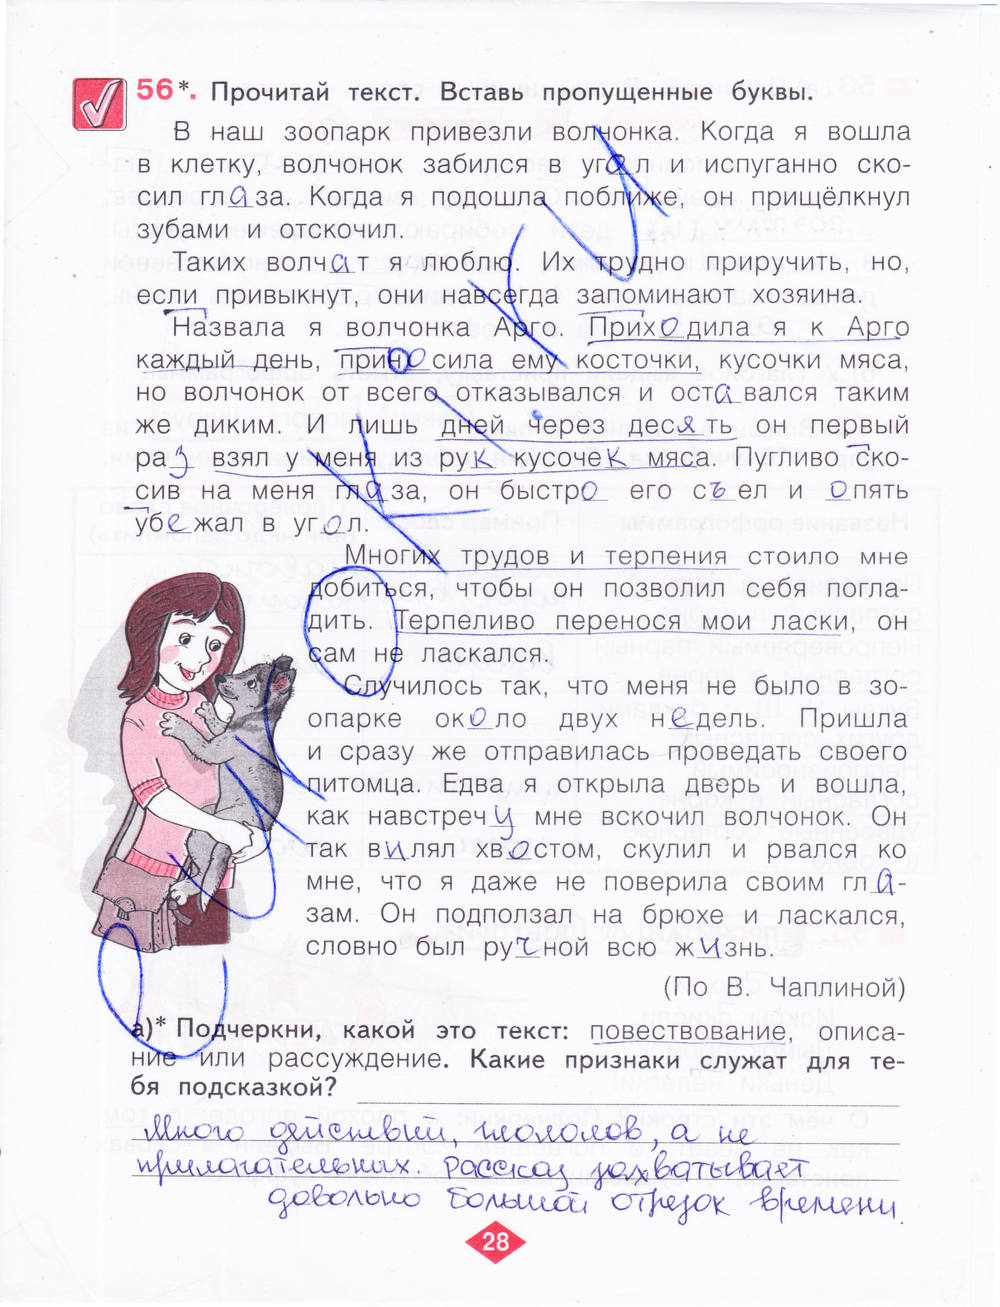 56*. Прочитай текст. Вставь пропущенные буквы.
В наш зоопарк привезли волчонка. Когда я вошла
в клетку, волчонок забился в угол и испуганно ско-
сил глаза. Когда я подошла поближе, он прищёлкнул
зубами и отскочил.
Таких волчат я люблю. Их трудно приручить, но,
если привыкнут, они навсегда запоминают хозяина.
Назвала я волчонка Арго. Приходила я к Арго
каждый день, приносила ему косточки, кусочки мяса,
но волчонок от всего отказывался и оставался таким
же диким. И лишь дней через десять он первый
раз взял у меня из рук кусочек мяса. Пугливо ско-
сив на меня глаза, он быстро его съел и опять
убежал в угол.
Многих трудов и терпения стоило мне
добиться, чтобы он позволил себя погла-
дить. Терпеливо перенося мои ласки, он
сам не ласкался.
Случилось так, что меня не было в зо-
опарке около двух недель. Пришла
и сразу же отправилась проведать своего
питомца. Едва я открыла дверь и вошла,
как навстречу мне вскочил волчонок. Он
так вилял хвостом, скулил и рвался ко
мне, что я даже не поверила своим гла-
зам. Он подползал на брюхе и ласкался,
словно был ручной всю жизнь.
(По В. Чаплиной)
а)* Подчеркни, какой это текст: повествование, описа-
ние или рассуждение. Какие признаки служат для те-
бя подсказкой?
Много действий, глаголов, а не
прилагательных. Рассказ захватывает
довольно большой отрезок времени
28